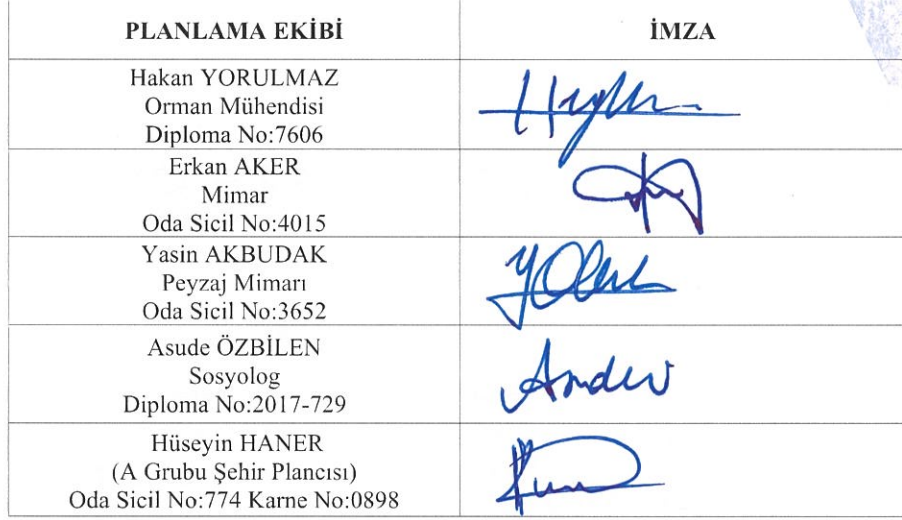 PLANLAMA EKİBİ İMZA
Hakan YORULMAZ
Orman Mühendisi
Diploma No:7606
Erkan AKER
Mimar
Oda Sicil No:4015
Yasin AKBUDAK
Peyzaj Mimarı
Oda Sicil No:3652
Asude ÖZBİLEN
Sosyolog
Diploma No:2017-729
Hüseyin HANER
(A Grubu Şehir Plancısı)
Oda Sicil No:774 Karne No:0898